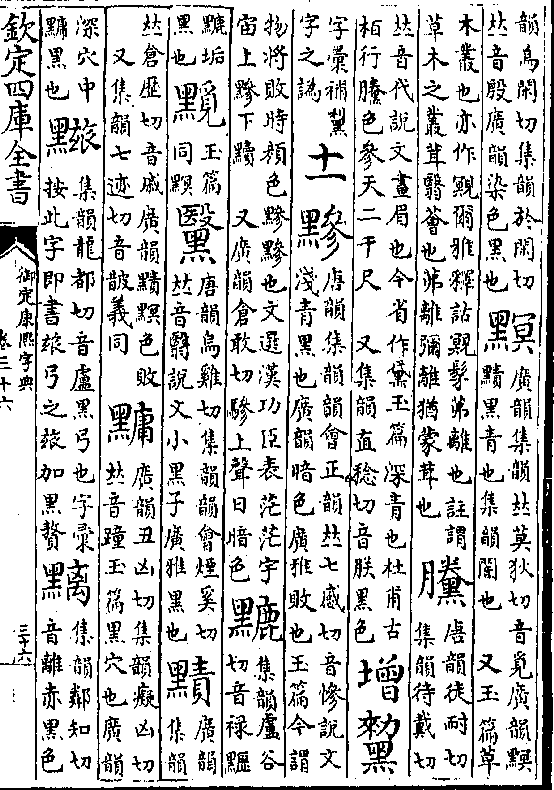 韻烏閑切集韻於閑切
𠀤音殷廣韻染色黑也
䵋
廣韻集韻𠀤莫狄切音覓廣韻䵋
䵧黑青也集韻闇也 又玉篇草
木叢也亦作覭爾雅釋詁覭髳茀離也註謂
草木之叢茸翳薈也茀離彌離猶蒙茸也
黱
唐韻徒耐切
集韻待戴切
𠀤音代說文畫眉也今省作黛玉篇深青也杜甫古
柏行黱色參天二千尺 又集韻直稔切音朕黑色
增
字彙補黧
字之譌
十一
黲
唐韻集韻韻會正韻𠀤七感切音慘說文
淺青黑也廣韻暗色廣雅敗也玉篇今謂
物將敗時顏色黲黲也文選漢功臣表茫茫宇
宙上黲下黷 又廣韻倉敢切驂上聲日暗色
集韻盧谷
切音祿
垢
黑也
玉篇
同䵋
黳
唐韻烏雞切集韻韻會煙奚切
𠀤音翳說文小黑子廣雅黑也
䵧
廣韻
集韻
𠀤倉歷切音戚廣韻䵧䵋色敗
又集韻七迹切音皵義同
廣韻丑凶切集韻癡凶切
𠀤音蹱玉篇黑穴也廣韻
深穴中
黑也
集韻龍都切音盧黑弓也字彙
按此字即書玈弓之玈加黑贅
集韻鄰知切
音離赤黑色
欽定四庫全書
御定康熙字典
卷三十六
三十六